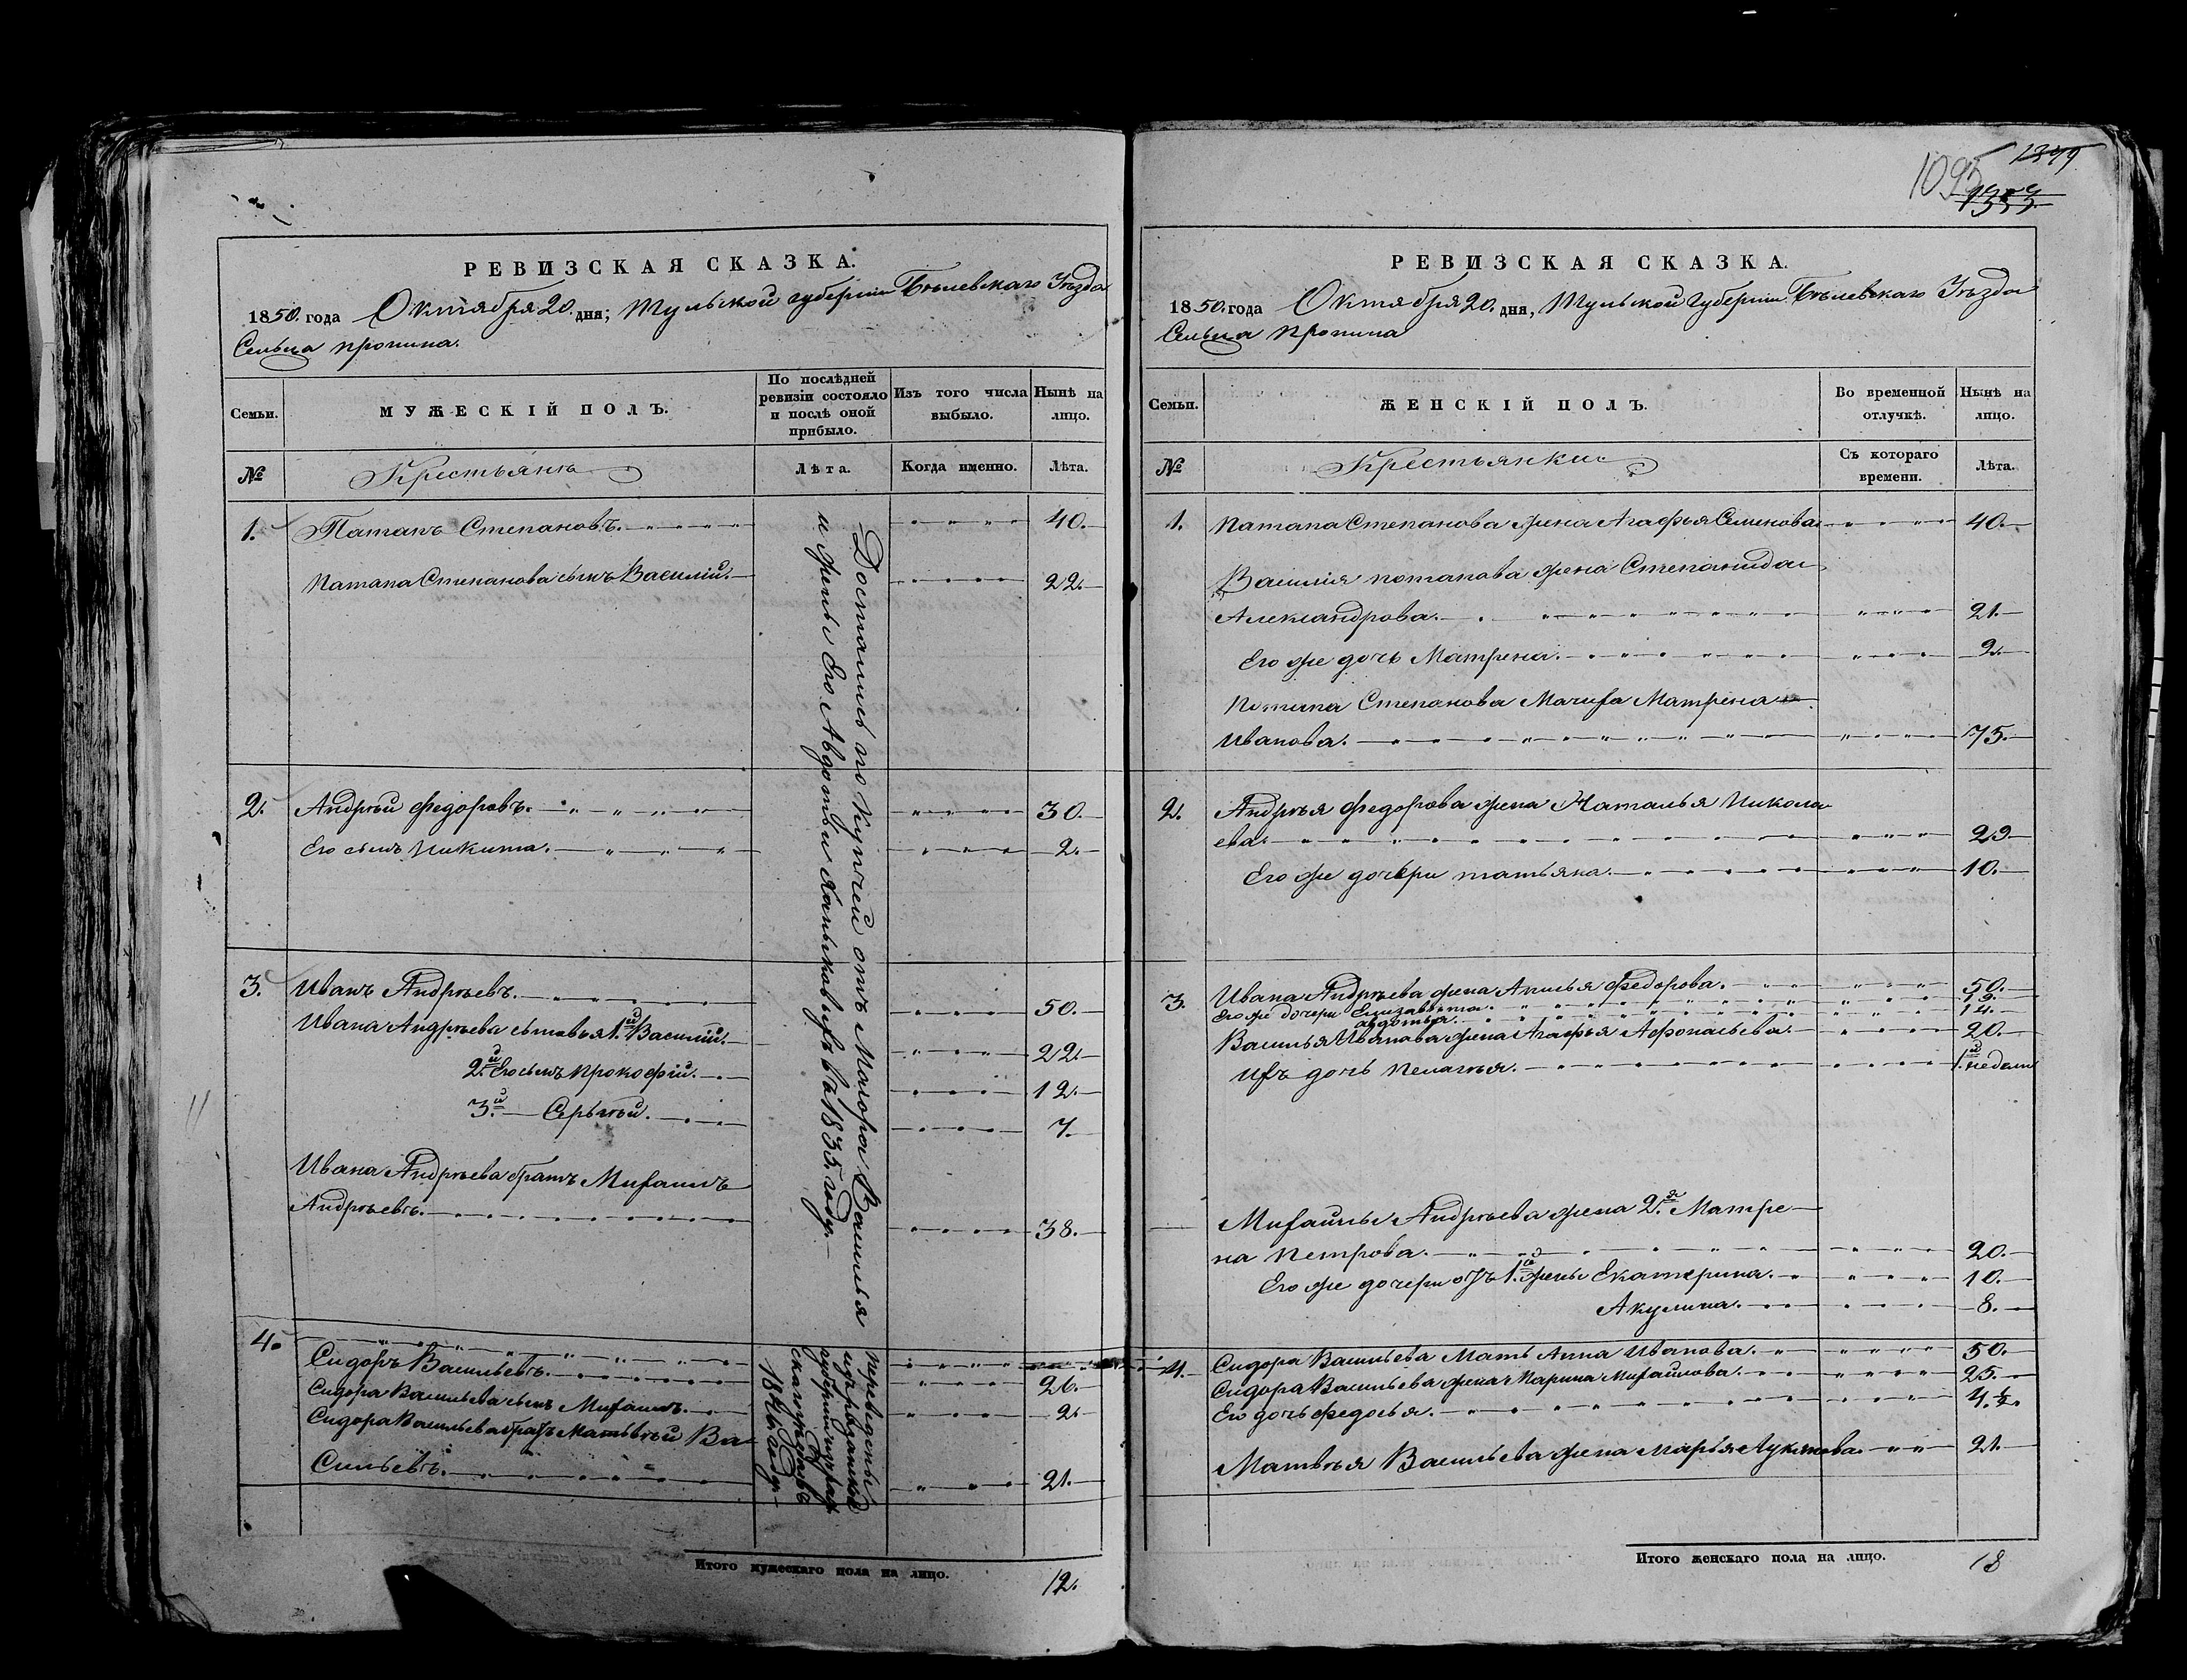 РЕВИЗСКАЯ СКАЗКА.
1850. года Октября 20. дня; Тульской губернии Бѣлевскаго Уѣзда
Сельца Пронина.
Семьи.
МУЖЕСКІЙ ПОЛЪ.
По послѣдней ревизіи состояло и послѣ оной прибыло.
Изъ того числа выбыло.
Нынѣ на лицо.
№
Крестьяне
Лѣта.
Когда именно.
Лѣта.
1. Патапъ Степановъ. 40.
Патапа Степанова сынъ Василій. 22.
2. Андрѣй Федоровъ. 30.
Его сынъ Никита. 2.
3. Иванъ Андрѣевъ. 50.
Ивана Андрѣева сыновья 1.й Василій. 22.
2.й Его сынъ Прокофій. 12.
3.й Сергѣй. 7.
Ивана Андрѣева братъ Михаилъ
Андрѣевъ. 38.
4.
Сидоръ Васильевъ. 26.
Сидора Васильева сынъ Михаилъ. 2.
Сидора Васильева братъ Матвѣй Ва-
сильевъ. 21.
Достались по купчей отъ Маіора Василья
и жены Его Авдотьи въ 1835. году.
переведены
губерніи
1846 году.
Итого мужескаго пола на лицо. 12.
1095
1349
1353.
РЕВИЗСКАЯ СКАЗКА.
1850. года Октября 20. дня, Тульской Губерніи Бѣлевскаго Уѣзда
Сельца Пронина
Семьи.
ЖЕНСКІЙ ПОЛЪ.
Во временной отлучкѣ.
Нынѣ на лицо.
№
Крестьянки
Съ котораго времени.
Лѣта.
1. Патапа Степанова жена Агафья Семенова 40.
Василія Потапова жена Степанида
Александрова. 21.
Его же дочь Матрена. 2.
Потапа Степанова Мачиха Матрена
Иванова. 75.
2. Андрѣя Федорова жена Наталья Никола
ева. 29
Его же дочери Татьяна. 10.
3. Ивана Андрѣева жена Акилья Федорова. 50.
Его же дочери Елизавѣта. 19.
Авдотья. 14.
Василья Иванова жена Агафья Афонасьева. 20.
Ихъ дочь Пелагѣя. 1.й недели
Михайлы Андрѣева жена 2.я Матре-
на Петрова. 20.
Его же дочери отъ 1.й жены Екатерина. 10.
Акулина. 8.
4. Сидора Васильева Мать Анна Иванова. 50.
Сидора Васильева жена Марина Михайлова. 25.
Его дочь Федосья. 4.½.
Матвѣя Васильева жена Марья Лукьянова. 21.
Итого женскаго пола на лицо. 18